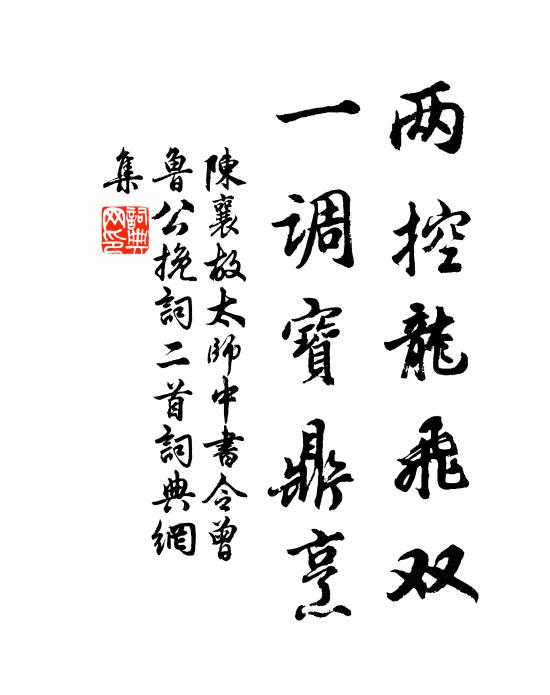 两控龍飛双
一调寶鼎烹
陳襄故太師中書令曾
魯公挽詞二首詞典網
集
詞典
网印